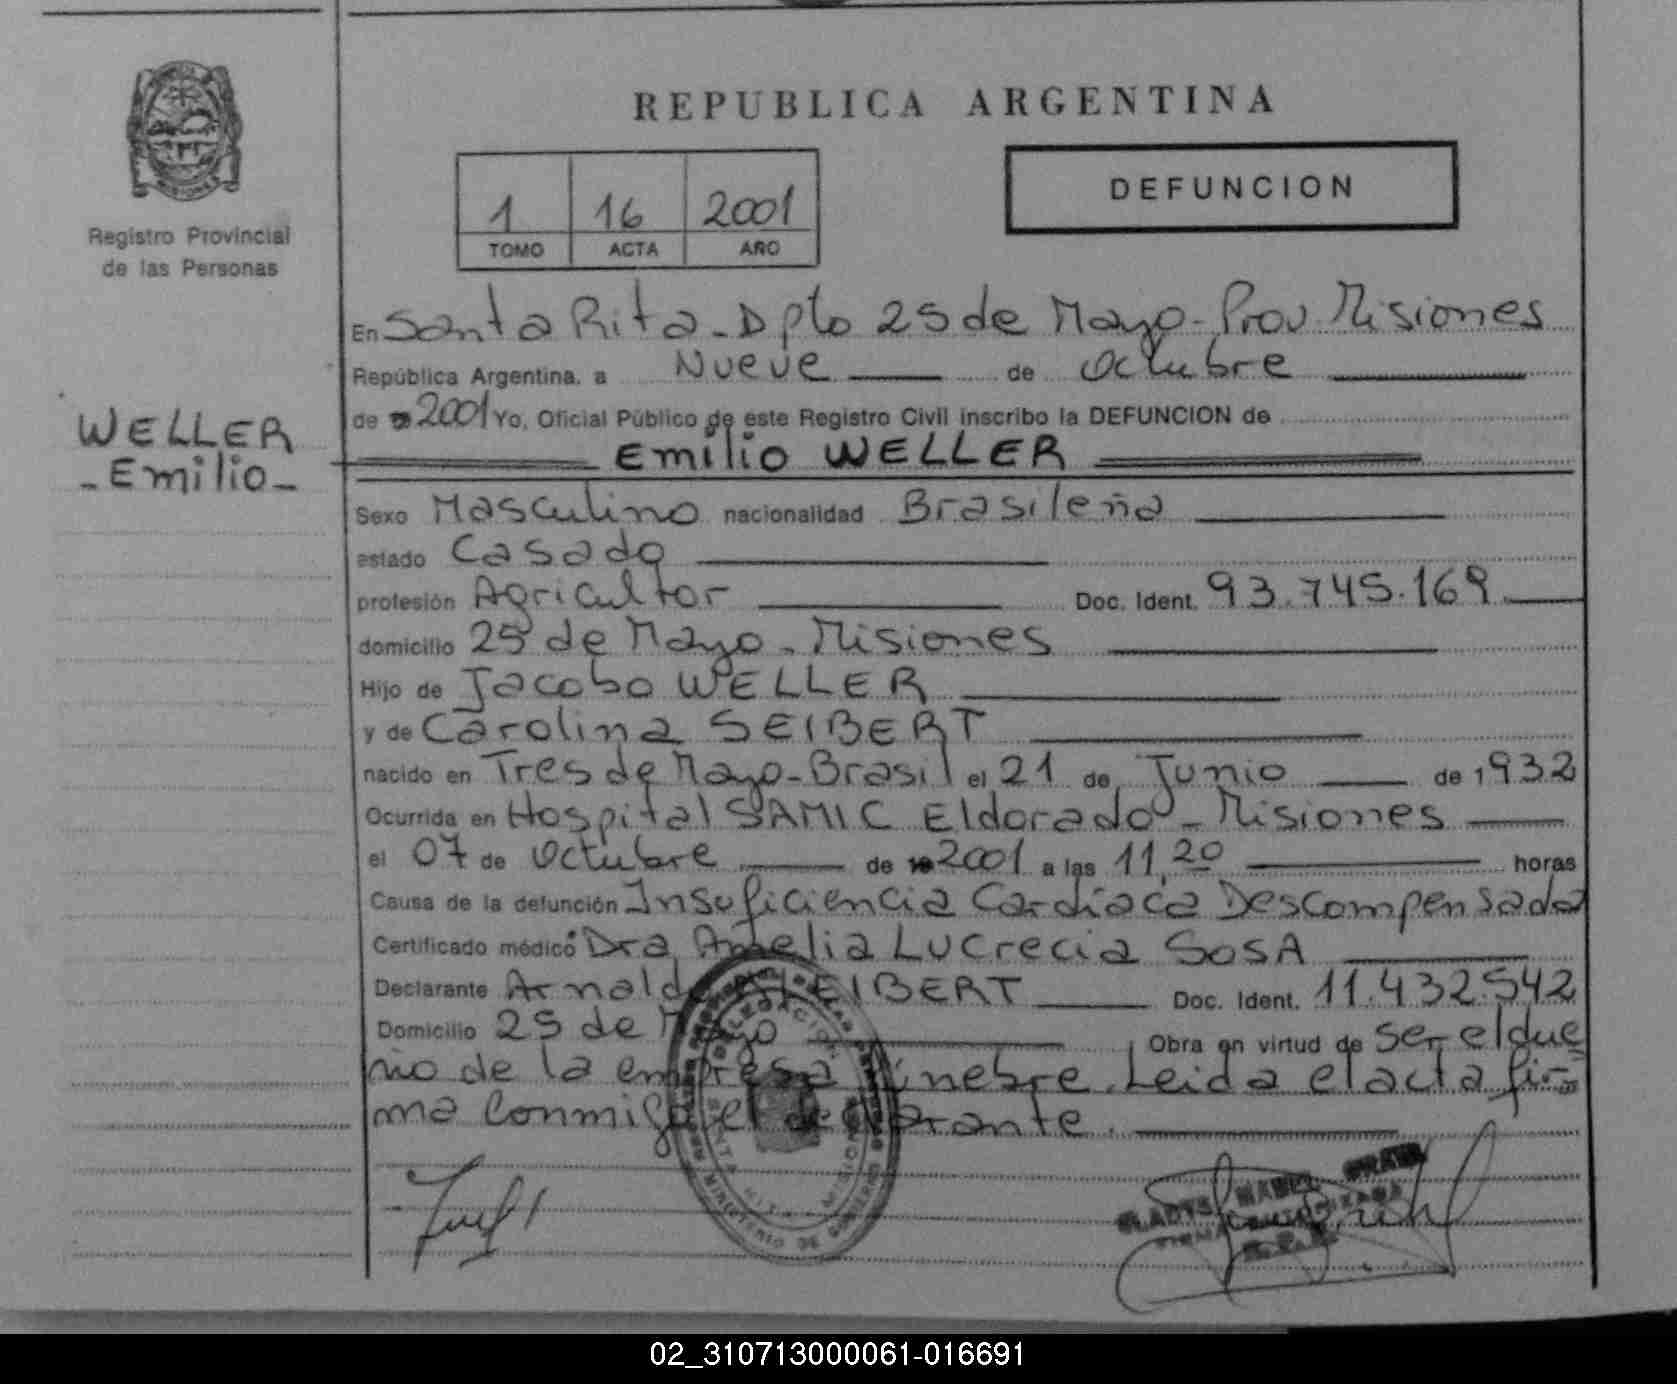 REPUBLICA ARGENTINA
DEFUNCION
1 16 2001
TOMO ACTA AÑO
Registro Provincial
de las Personas
WELLER
- Emilio -
En Santa Rita - Dpto 25 de Mayo - Prov. Misiones
República Argentina, a Nueve de Octubre
de 2001 Yo, Oficial Público de este Registro Civil inscribo la DEFUNCION de
Emilio WELLER
Sexo Masculino nacionalidad Brasileña
estado Casado
profesión Agricultor Doc. Ident. 93.745.169
domicilio 25 de Mayo - Misiones
Hijo de Jacobo WELLER
y de Carolina SEIBERT
nacido en Tres de Mayo - Brasil el 21 de Junio de 1932
Ocurrida en Hospital SAMIC Eldorado - Misiones
el 07 de Octubre de 2001 a las 11,20 horas
Causa de la defunción Insuficiencia Cardíaca Descompensada
Certificado médico Dra Amelia Lucrecia SOSA
Declarante Arnaldo SEIBERT Doc. Ident. 11.432.542
Domicilio 25 de Mayo Obra en virtud de ser el due
ño de la empresa fúnebre. Leida el acta fir-
ma conmigo el declarante.
GLADYS MABEL
02_310713000061-016691